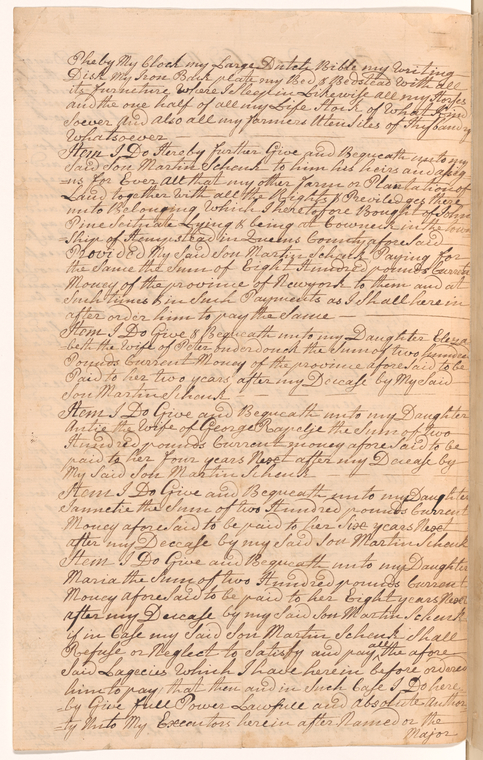 Pheby My Clock my Large Dutch Bible my writing
Disk My Iron Back plate my Bed & Bedstead With all
its furneture Where I Sleep in Likewise all my Horses
and the one half of all my Life Stock of What Kind
Soever and also all my farmers Utensiles of Husbandry
Whatsoever
Item I Do Hereby further Give and Bequeath unto my
Said Son Martin Schenk to him his heirs and assig
=ns for Ever All that my other farm or Plantation of
Land together with all the Rights & Previledges there
unto Belonging Which I heretofore Bought of John
Pine Scituate Lying & being at Cowneck in the town
Ship of Hempstead in Queens County afore Said
Provided My Said Son Martin Schenk Paying for
the Same the Sum of Eight Hundred pounds Current
Money of the province of Newyork to them and at
Such times & in Such Payments as I Shall here in
after order him to pay the Same
Item I Do Give & Bequeath unto my Daughter Eleza
beth the Wife of Peter onderdonck the Sum of two hundred
Pounds Current Money of the province afore Said to be
Paid to her two years after my Decease by My Said
Son Martin Schenk
Item I Do Give and Bequeath unto my Daughter
Antie the Wife of George Rapelye the Sum of two
Hundred pounds Current money afore Said to be
paid to her four years Next after my Decease by
My Said Son Martin Schenk
Item I Do Give and Bequeath unto my Daughter
Jannetie the Sum of two Hundred pounds Current
Money afore Said to be paid to her Six years Next
after my Decease by my Said Son Martin Schenk
Item I Do Give and Bequeath unto my Daughter
Maria the Sum of two Hundred pounds Current
Money afore Said to be paid to her Eight years Next
after my Decease by my Said Son Martin Schenk &
if in Case my Said Son Martin Schenk Shall
Refuse or Neglect to Satisfy and pay all the afore
Said Lagecies Which I have herein before ordered
him to pay, that then and in Such Case I Do here
by Give full Power Lawfull and absolute Author
=ty Unto My Executors herein after Named or the
Major